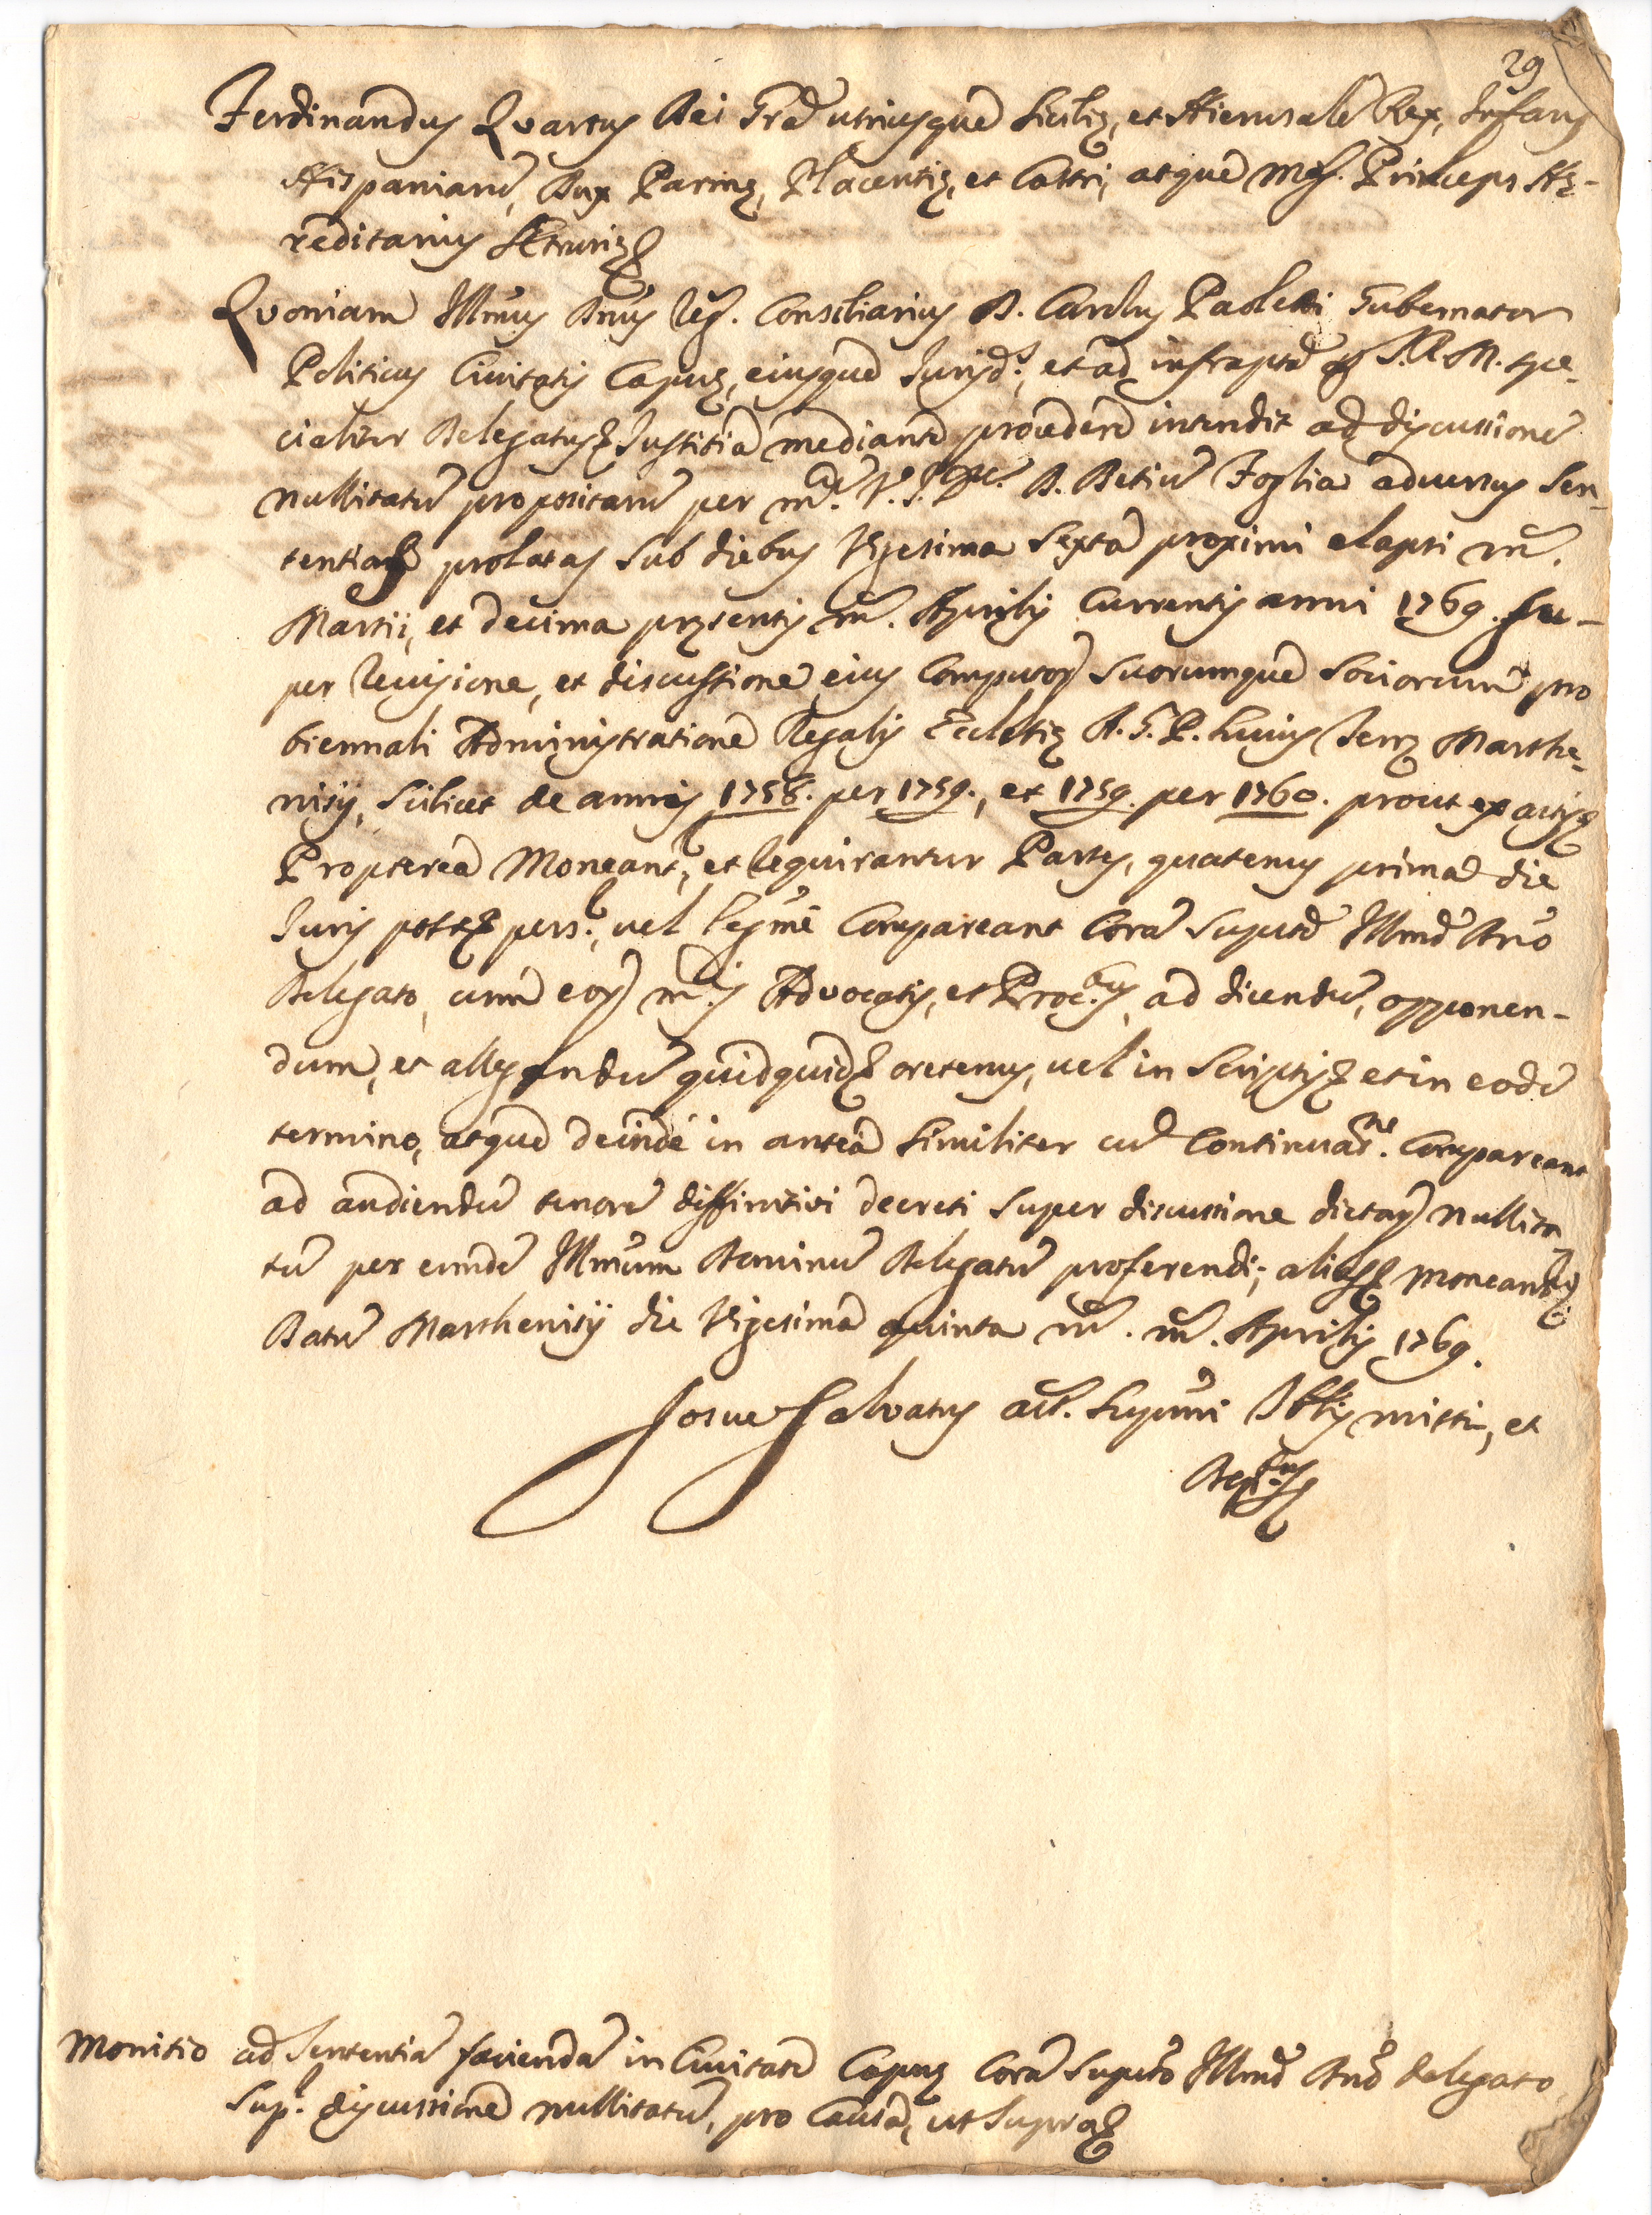 29
Ferdinandus Quartus Dei Gra utriusque Siciliæ, et Hierusale Rex, Infans
Hispaniarũ, Dux Parmæ, Placentiæ, et Castri, atque Mag. Princeps Hæ-
reditarius Etruriæ
Quoniam Illmus Dnus Reg. Consiliarius D. Carolus Paoletti Gubernator
Politicus Civitatis Capuæ, eiusque Jurisd.s, et ad infraptã S.R.M. spe-
cialiter Delegatus Justitia mediante providere intendit ad discussionẽ
nullitatũ propositarũ per m.cum V.J.D.rem D. Betiũ Foglia adversus Sen-
tentias prolatas sub diebus Vigesima Sexta proximi elapsi m̃.
Martii, et decima præsentis m̃. Aprilis Currentis anni 1769. Su-
per revisione, et discussione eius Computor suorumque Sociorum pro
biennali Administratione Regalis Ecclesiæ A.G.P. huius Terræ Marthe-
nisij, scilicet de annis 1758. per 1759., et 1759. per 1760. prout ex actis
Propterea Moneant.r, et requirantur Partes, quatenus prima die
Juris post pers.r, vel legmè Compareant Corã Suputo Illmo Dno
Delegato, cum eor m.cis Advocatis, et Proc.bus, ad dicendũ, opponen-
dum, et allegandũ quidquid oretenus, vel in Scriptis et in eodẽ
termino, atque deinde in antea Similiter cũ Continuat.ne Compareant
ad audiendũ tenorẽ diffinitivi decreti super discussione dictar nullita
tũ per eundẽ Illmum Dominũ Delegatũ proferendi; alias Moneant.r
Datũ Marthenisij die Vigesima quinta m̃. m̃. Aprilis 1769.
Josue Salvatus act. Supmi missi, et
Dep.tus
Monitio ad Sententiã faciendã in Civitate Capuæ Corã Suputo Illmo Dno delegato
Sup.r discussione nullitatũ, pro Causa, ut Supra